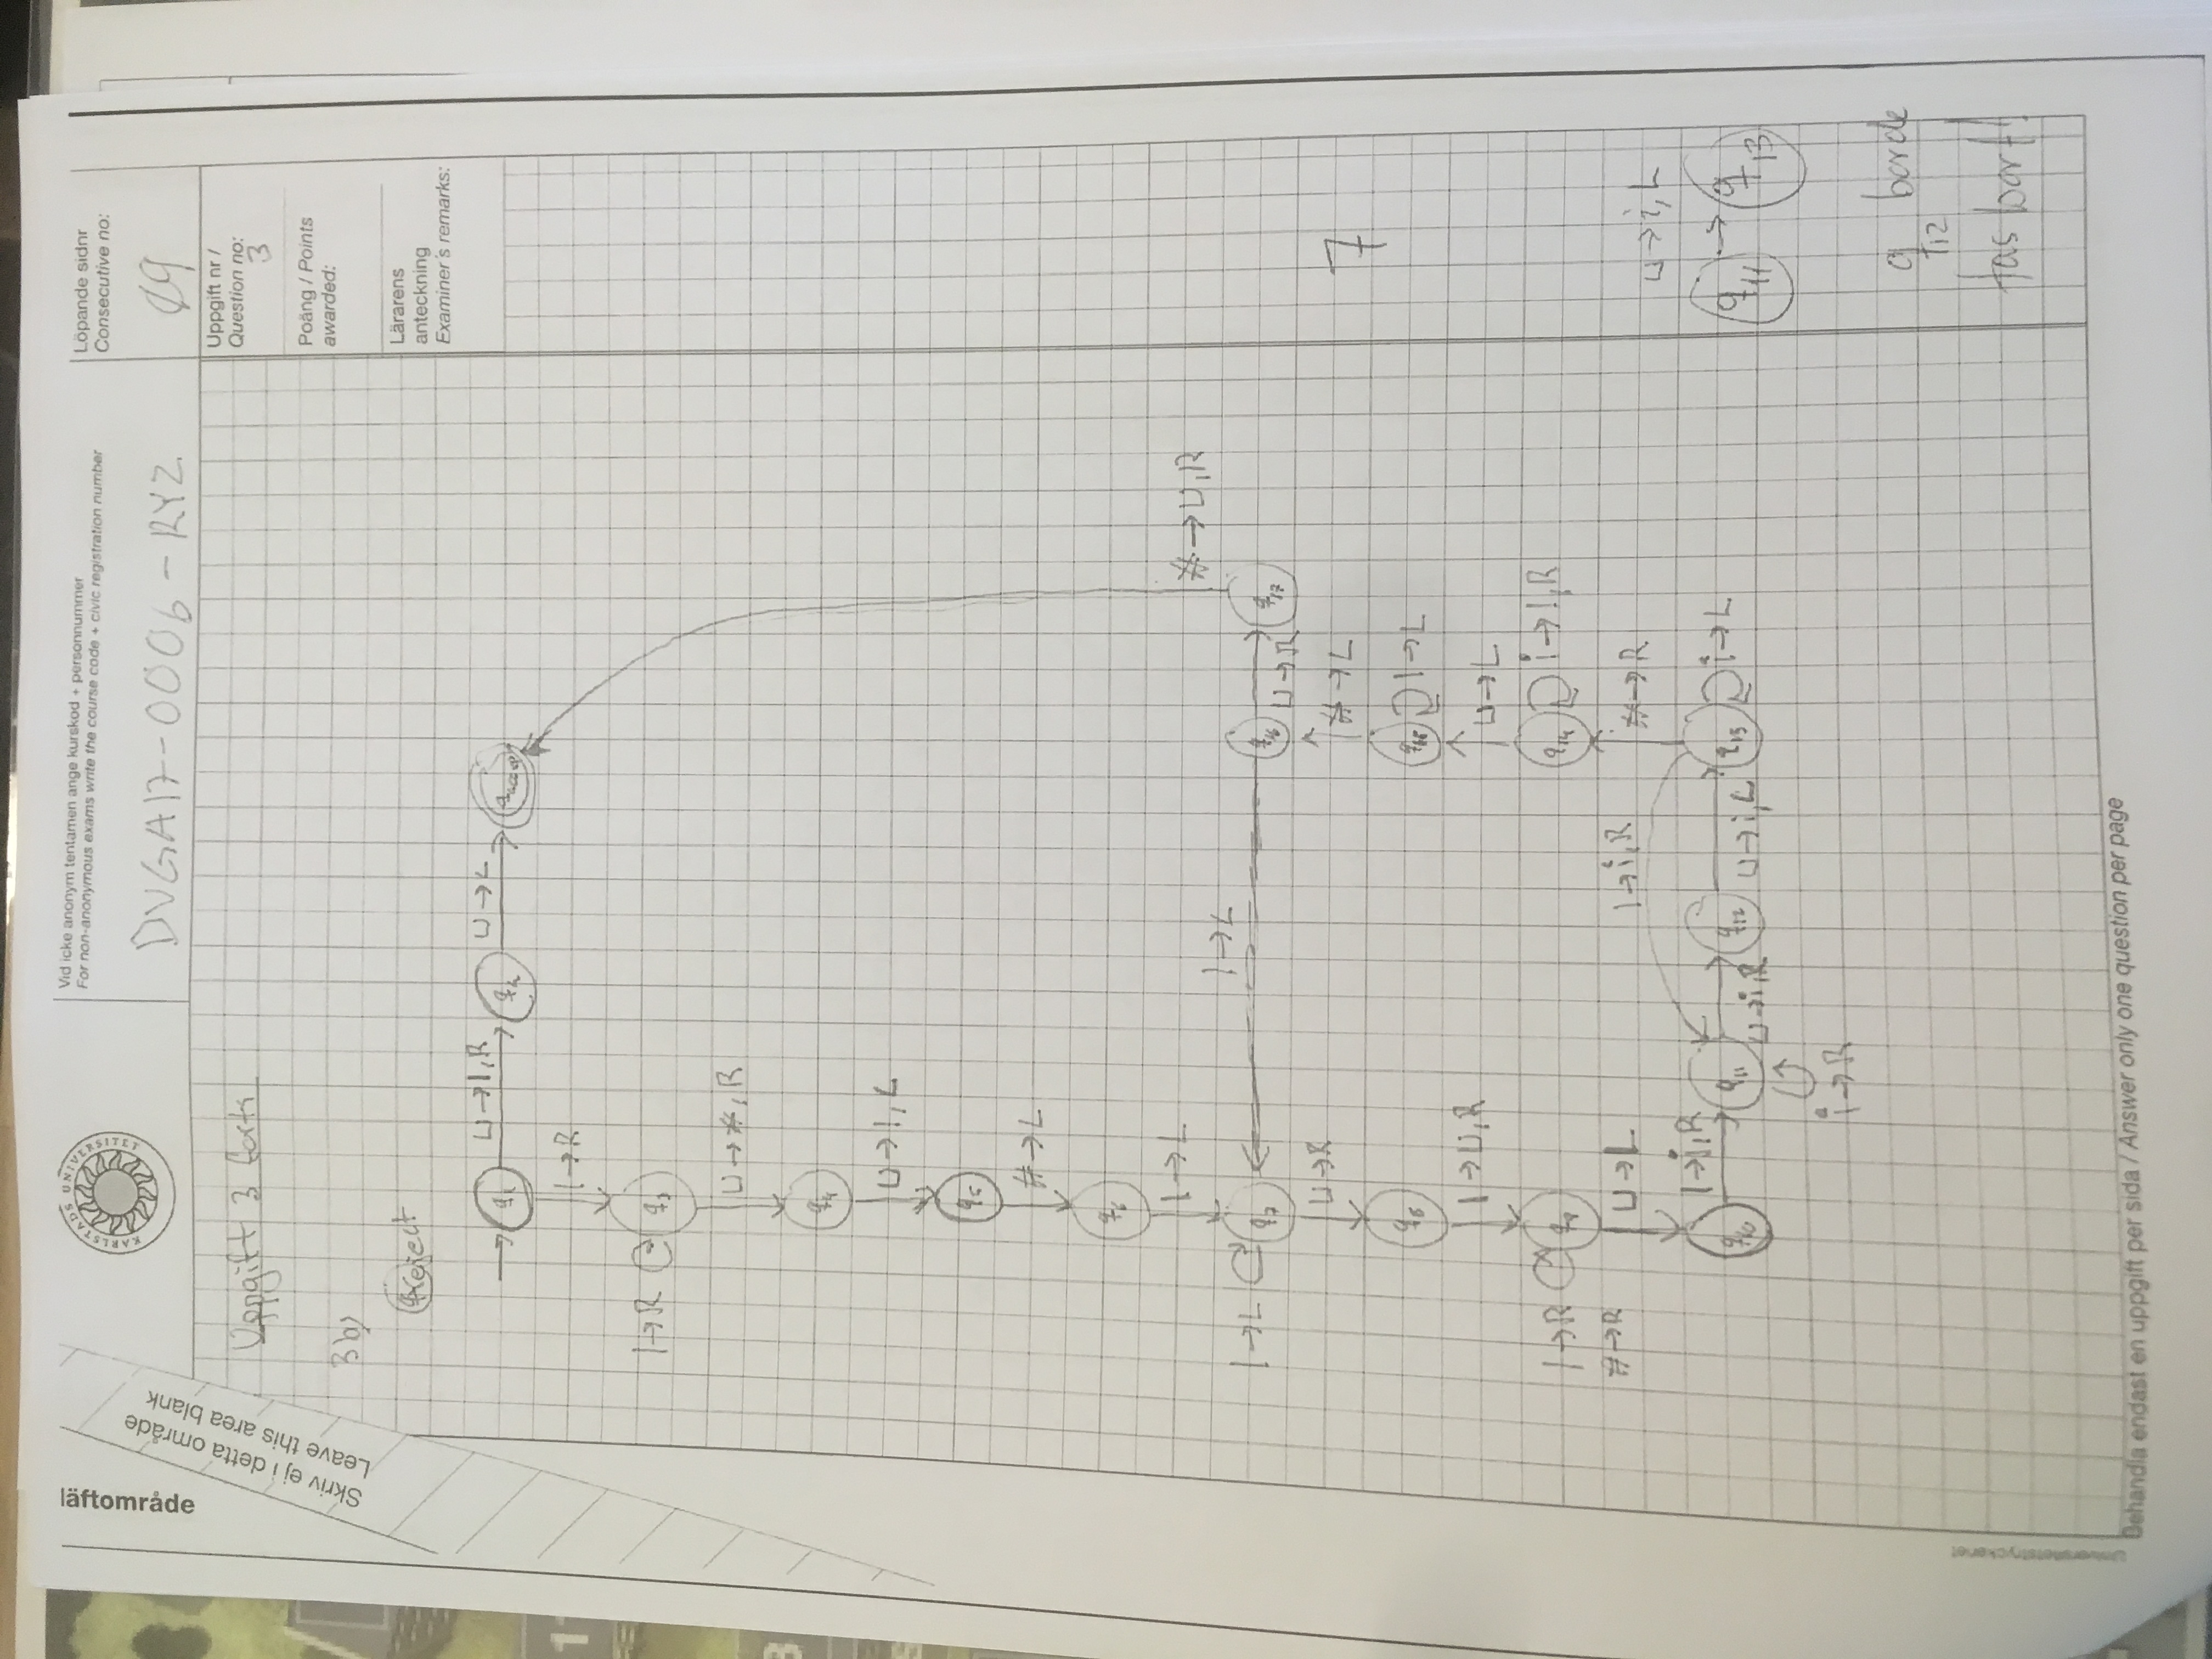 läftområde
Skriv ej i detta område
Leave this area blank
KARLSTADS UNIVERSITET
Vid icke anonym tentamen ange kurskod + personnummer
For non-anonymous exams write the course code + civic registration number
DVGA17-0006-RYZ
Löpande sidnr
Consecutive no:
09
Uppgift nr /
Question no:
3
Poäng / Points
awarded:
Lärarens
anteckning
Examiner's remarks:
Uppgift 3 forts
3b)
qreject
q1
⊔→1,R
q2
⊔→L
qaccept
1→R
1→R
q3
⊔→#,R
q4
⊔→1,L
q5
#→L
q6
1→L
#→⊔,R
1→L
q7
1→L
q16
⊔→R
q17
⊔→R
#→L
7
q8
q15
1→L
1→⊔,R
⊔→L
1→R
q9
q14
i→1,R
#→R
⊔→L
1→i,R
#→R
⊔→i,L
q10
1→i,R
q11
⊔→i,R
q12
⊔→i,L
q13
i→L
q11
→
q13
i→R
q12 borde
tas bort!
Universitetstryckeriet
Behandla endast en uppgift per sida / Answer only one question per page